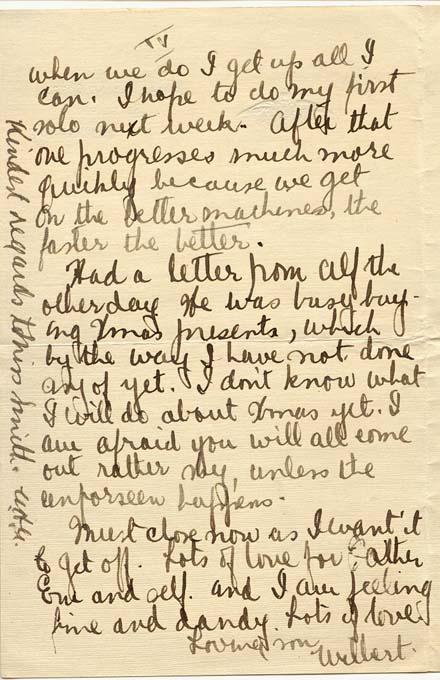 IV
when we do I get up all I
can. I hope to do my first
solo next week. After that
one progresses much more
quickly because we get
on the better machines, the
faster the better.
Had a letter from Alf the
other day. He was busy buy-
ing Xmas presents, which
by the way I have not done
any of yet. I don't know what
I will do about Xmas yet. I
am afraid you will all come
out rather shy, unless the
unforseen happens.
Must close now as I want it
to get off. Lots of love for Father
Em and self. and I am feeling
fine and dandy. Lots of love.
Loving son
Wilbert.
Kindest regards to Miss Smith.